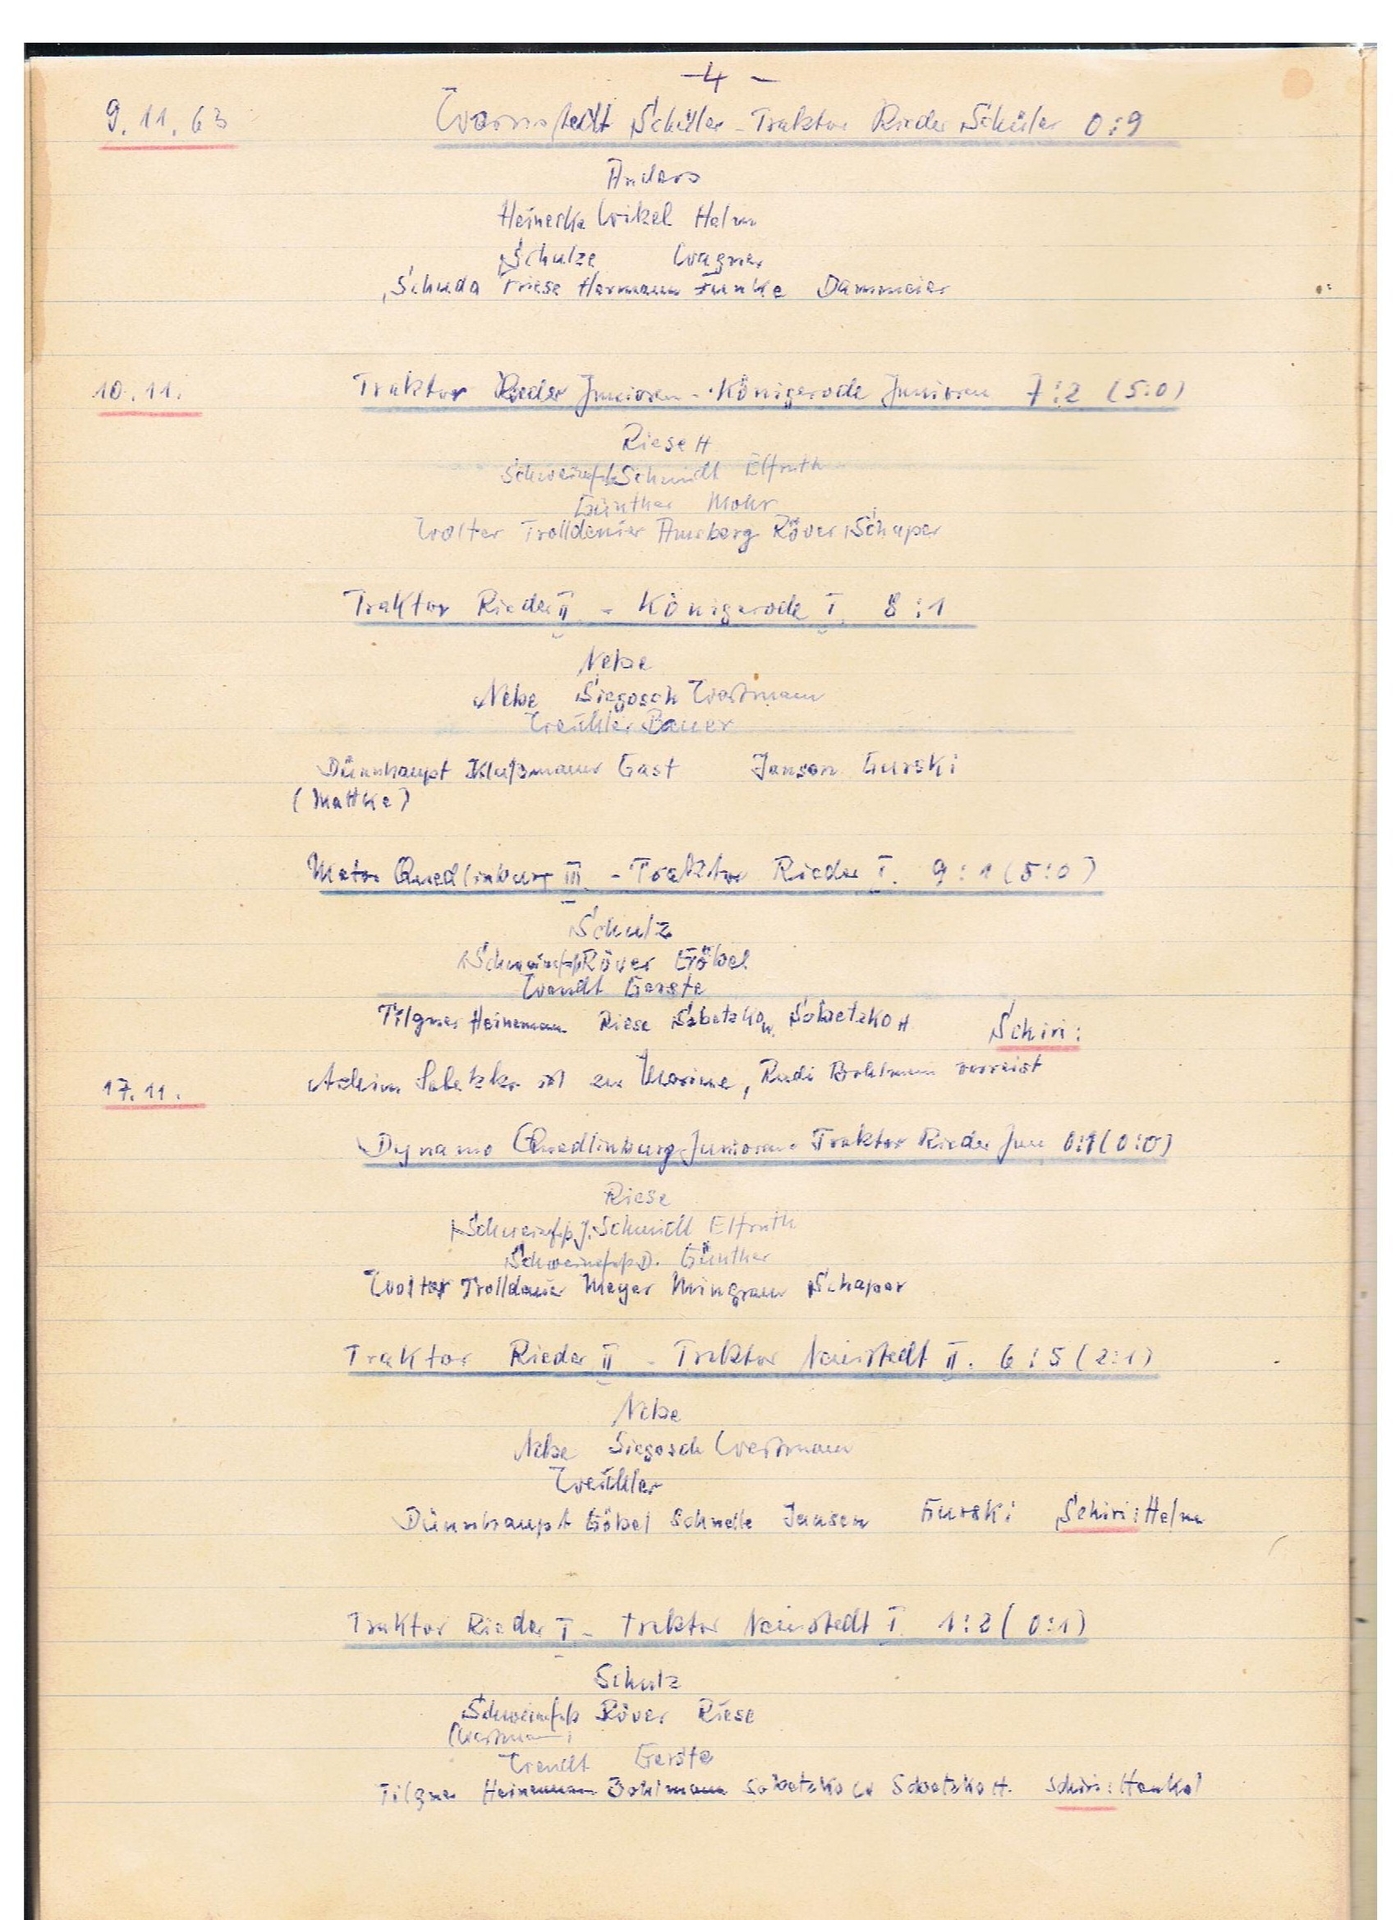 - 4 -
9.11.63 Warnstedt Schüler - Traktor Rieder Schüler 0:9
Anders
Heinecke Wikel Halm
Schulze Wagner
Schuda Friese Hermann Funke Dammeier
10.11. Traktor Rieder Junioren - Königerode Junioren 7:2 (5:0)
Riese H
Schweinefuß Schmidt Elfruth
Günther Mohr
Wolter Trolldenier Amsberg Röver Schaper
Traktor Rieder II - Königerode I 8:1
Nebe
Nebe Siegosch Westmann
Weühler Bauer
Dünnhaupt Klußmann Gast Jansen Gurski
(Mattke)
Motor Quedlinburg III - Traktor Rieder I. 9:1 (5:0)
Schulz
Röver Göbel
Wendt Gerste
Tilgner Heinemann Riese Sobetzko W. Sobetzko H Schiri:
17.11. Achim Sobetzko ist zur Marine, Rudi Bohlmann verreist
Dynamo Quedlinburg Junioren - Traktor Rieder Jun 0:1 (0:0)
Riese
J. Schmidt Elfruth
D. Günther
Wolter Trolldenier Meyer Mingram Schaper
Traktor Rieder II - Traktor Neinstedt II. 6:5 (2:1)
Nebe
Nebe Siegosch Westmann
Weühler
Dünnhaupt Göbel Schnelle Jansen Gurski Schiri: Halm
Traktor Rieder I - Traktor Neinstedt I 1:2 (0:1)
Schulz
Röver Riese
(Westmann)
Wendt Gerste
Tilgner Heinemann Bohlmann Sobetzko W Sobetzko H. Schiri: Henkel